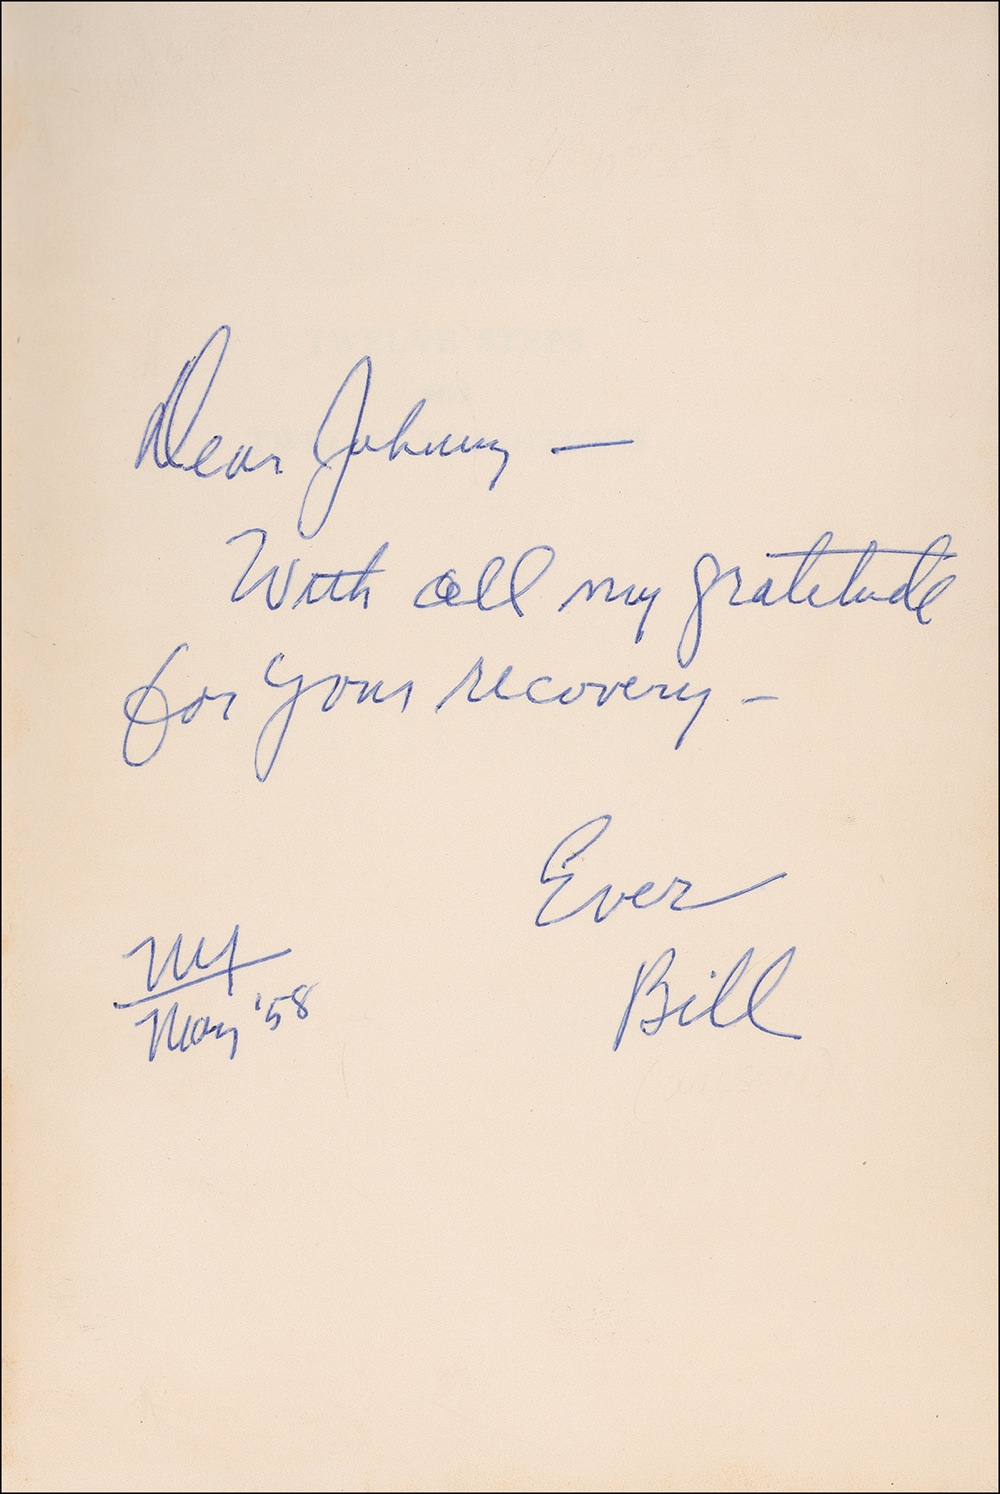 Dear Johnny —
With all my gratitude
for your recovery –
Ever
Bill
NY
May '58